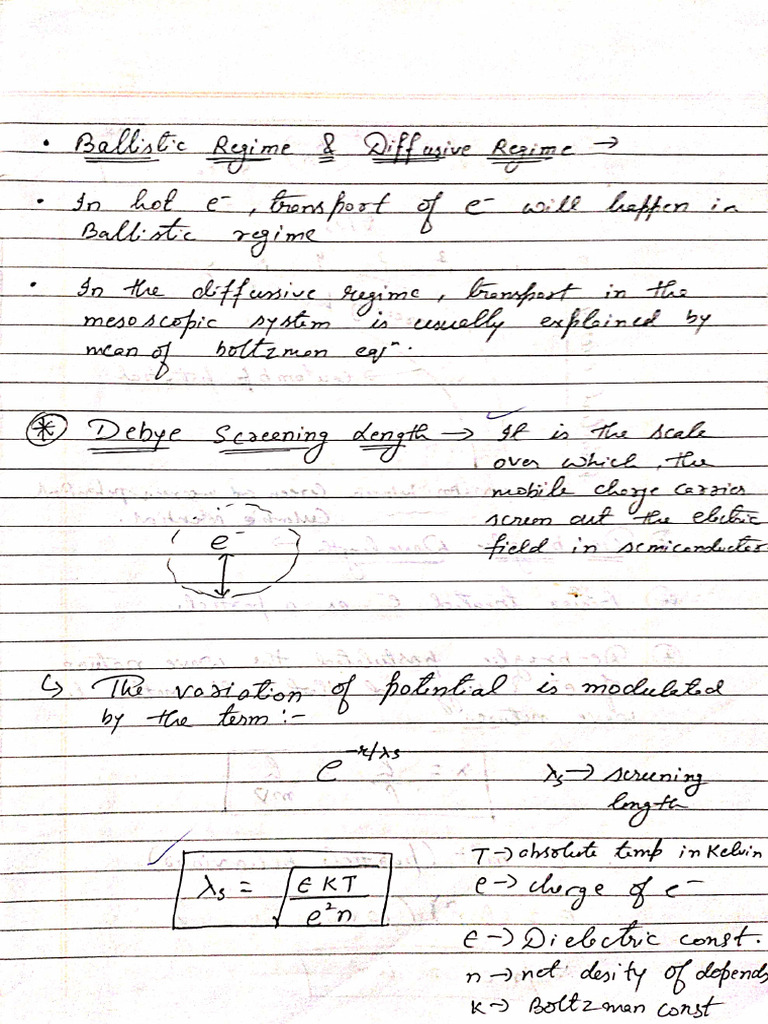 • Ballistic Regime & Diffusive Regime →
• In hot e⁻, transport of e⁻ will happen in
Ballistic regime
• In the diffussive regime, transport in the
mesoscopic system is usually explained by
mean of boltzman eqⁿ.
* Debye Screening Length → It is the scale
over which, the
mobile charge carrier
screen out the electric
field in semiconductor
e⁻
↳ The variation of potential is modulated
by the term :-
e^(-r/λs)
λs → screening
length
λs = √(ϵKT / e²n)
T → absolute temp in Kelvin
e → charge of e⁻
ϵ → Dielectric const.
n → net desity of depends
K → Boltzman const